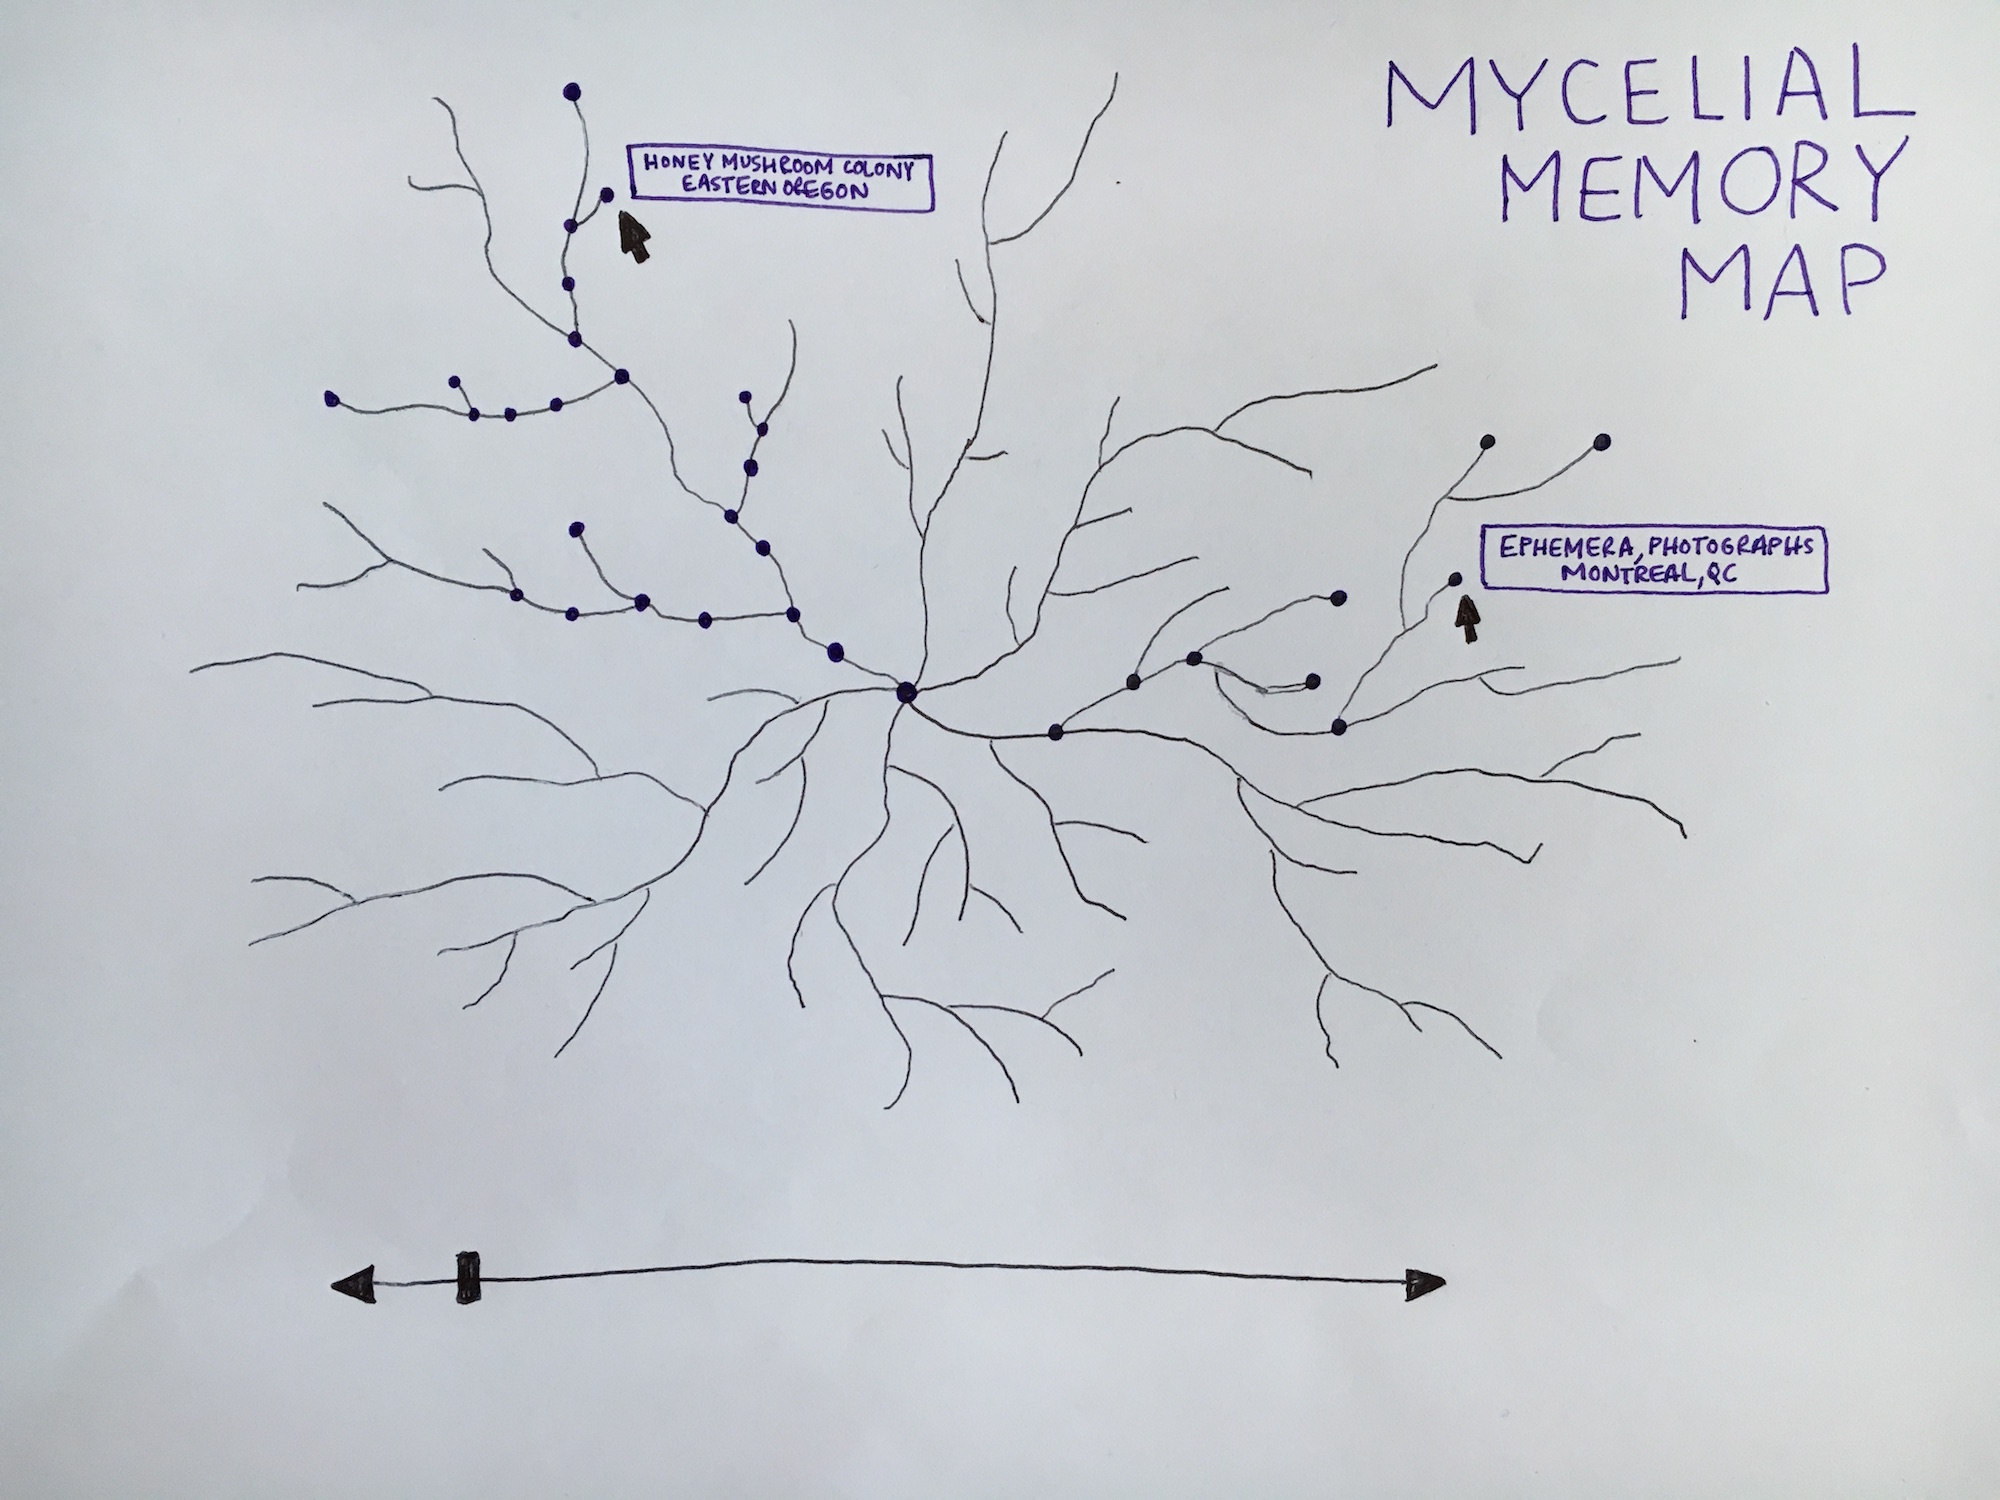 MYCELIAL
MEMORY
MAP
HONEY MUSHROOM COLONY
EASTERN OREGON
EPHEMERA, PHOTOGRAPHS
MONTREAL, QC